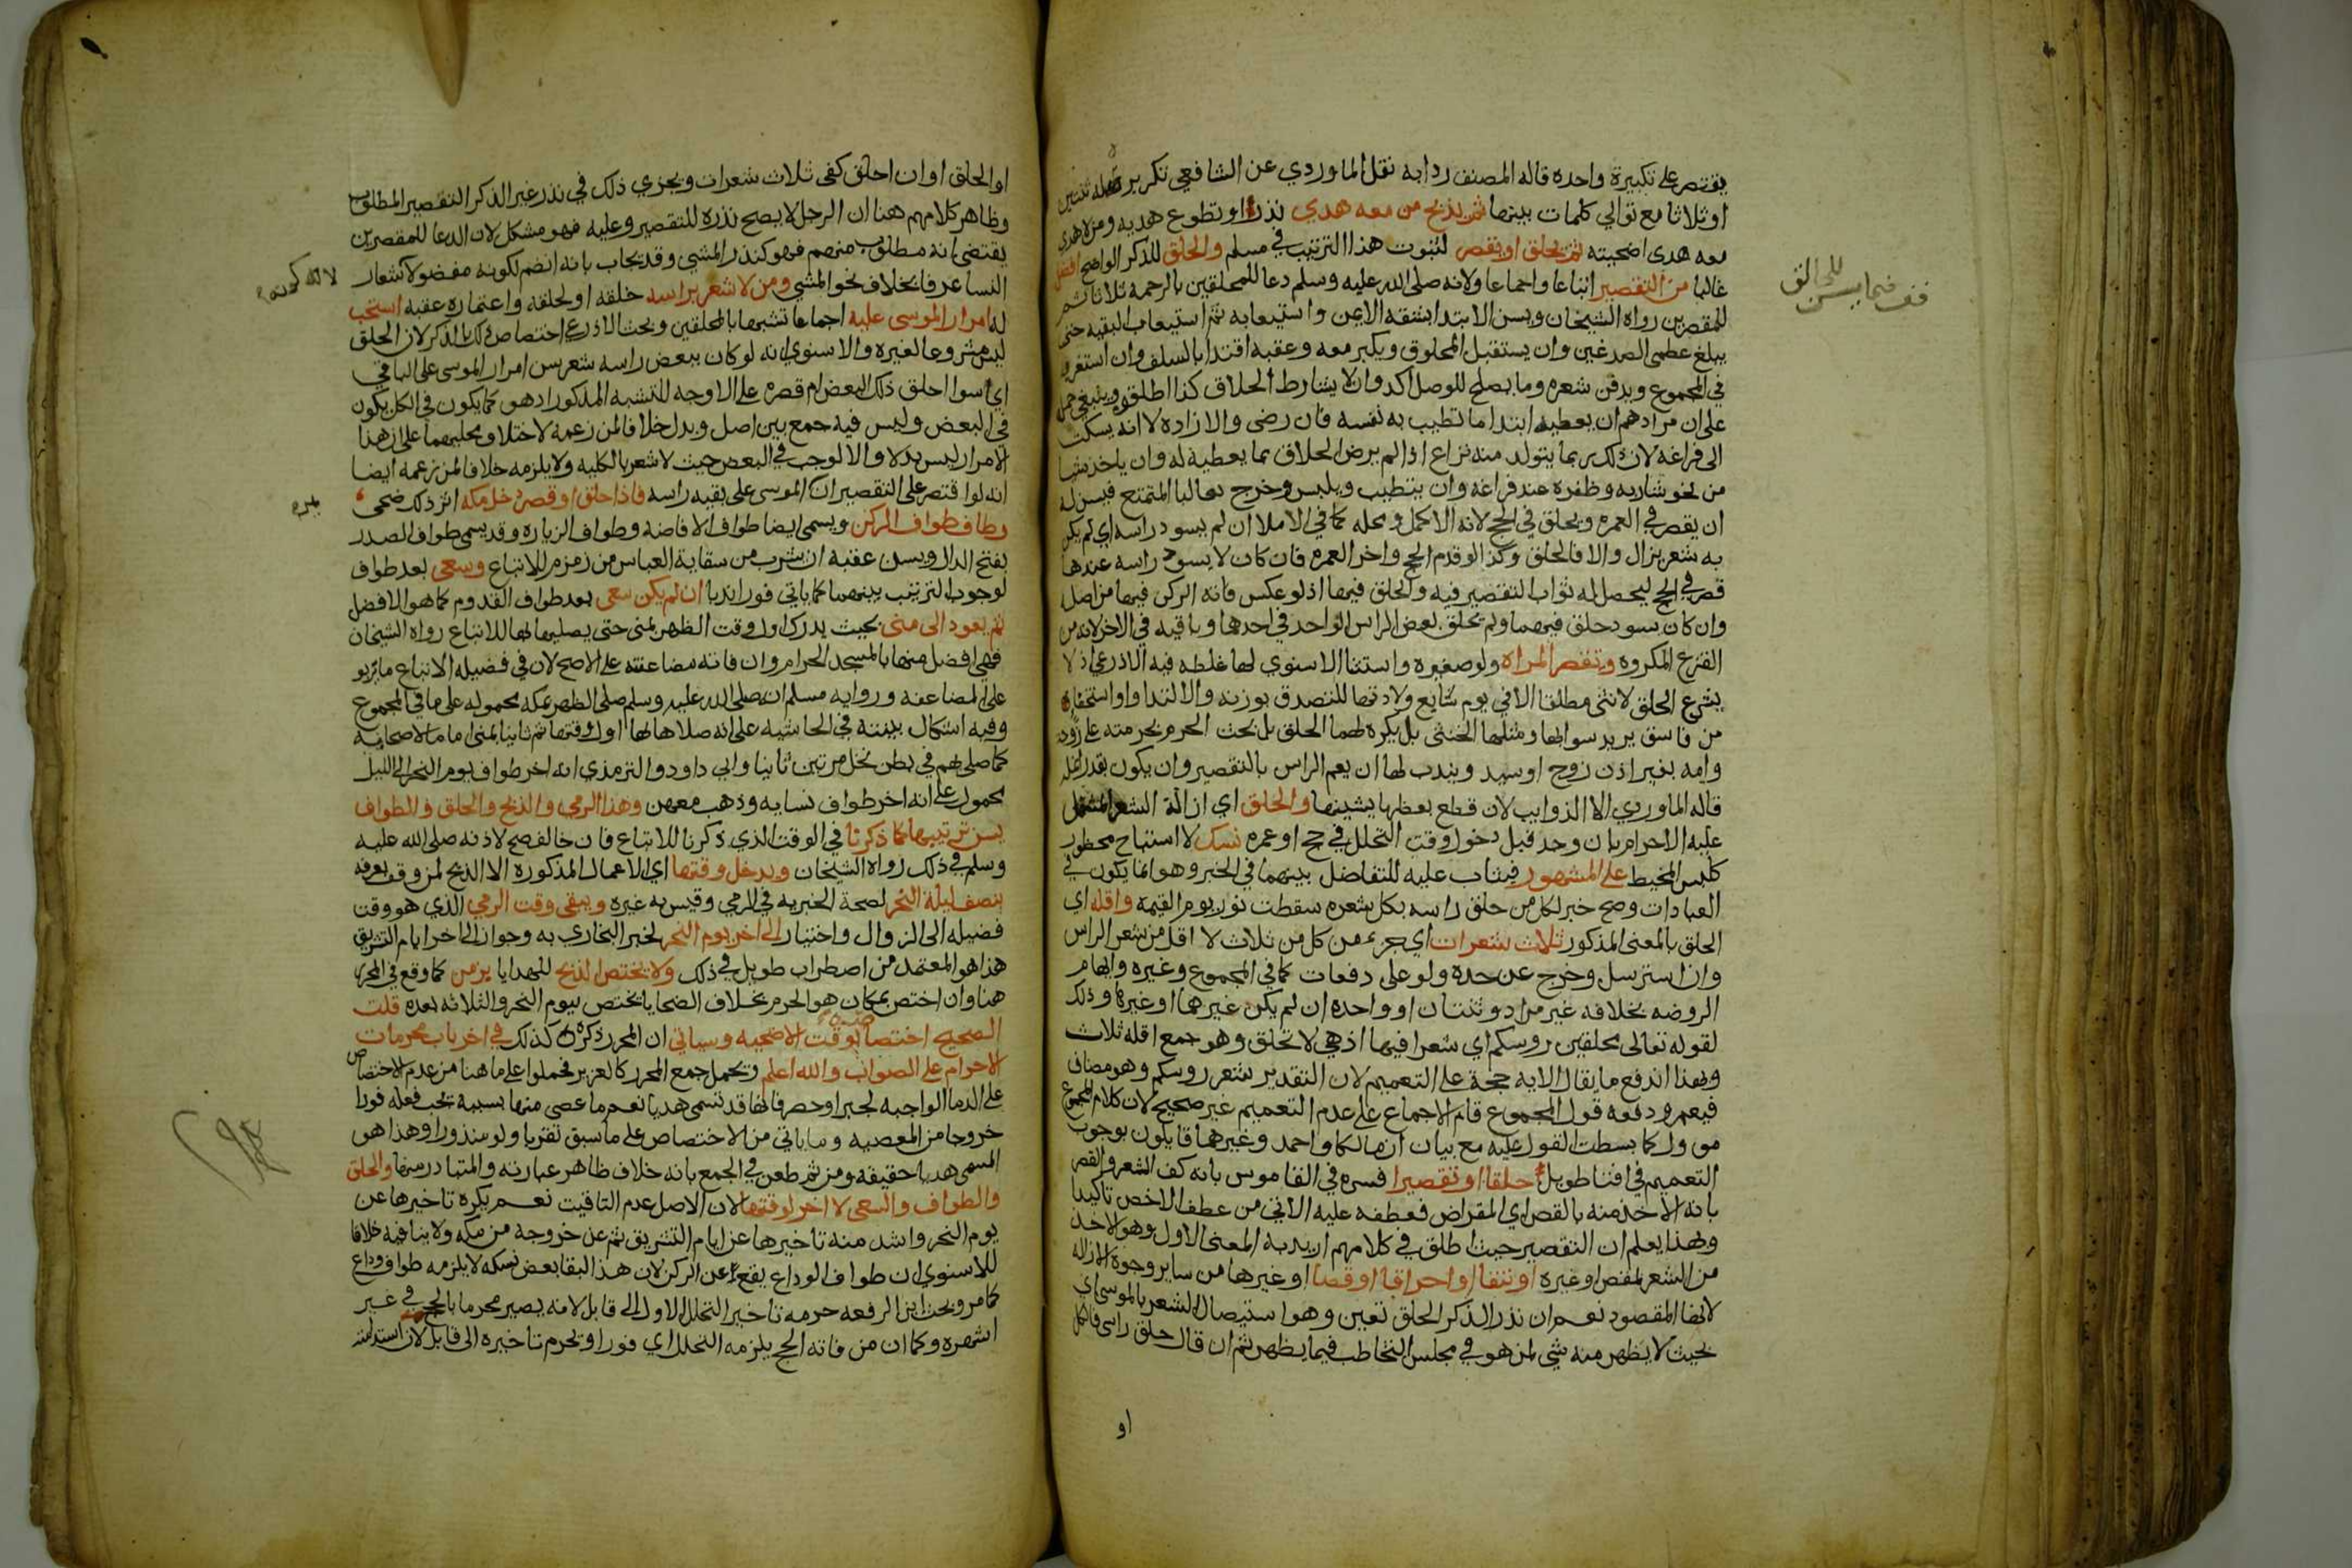 يقتصر على تكبيرة واحده قاله المصنف ردا به نقل الماوردي عن الشافعي تكريره ثنتين
او ثلاثا مع توالي كلمات بينها ثم يذبح من معه هدي نذرا او تطوع هديه ومن لا هدي
معه هدى اضحيته ثم يحلق او يقصر لثبوت هذا الترتيب في مسلم والحلق للذكر الواضح افضل
غالبا من التقصير اتباعا واجماعا ولانه صلى الله عليه وسلم دعا للمحلقين بالرحمة ثلاثا ثم
للمقصرين رواه الشيخان ويسن الابتدا بشقه الايمن واستيعابه ثم استيعاب البقيه حتى
يبلغ عظمى الصدغين وان يستقبل المحلوق ويكبر معه وعقبه اقتدا بالسلف وان استغرب
في المجموع ويدفن شعره وما يصلح للوصل اكد وان لا يشارط الحلاق كذا اطلقوه وينبغي حمل
على ان مرادهم ان يعطيه ابتدا ما تطيب به نفسه فان رضى والا زاده لا انه يسكت
الى فراغه لان ذلك ربما يتولد منه نزاع اذا لم يرض الحلاق بما يعطيه له وان ياخذ شيا
من نحو شاربه وظفره عند فراغه وان يتطيب ويلبس وخرج بغالبا المتمتع فيسن له
ان يقصر في العمره ويحلق في الحج لانه الاكمل ومحله كما في الاملا ان لم يسود راسه اي لم يكن
به شعر يزال والا فالحلق وكذا لو قدم الحج واخر العمره فان كان لا يسود راسه عندها
قصر في الحج ليحصل له ثواب التقصير فيه والحلق فيها اذ لو عكس فاته الركن فيها من اصله
وان كان يسود حلق فيهما ولم يحلق بعض الراس الواحد في احدها وباقيه في الاخر لانه من
القزع المكروه وتقصر المراه ولو صغيره واستثنا الاسنوي لها غلطه فيه الاذرعي اذ لا
يشرع الحلق لانثى مطلقا الا في يوم سابع ولادتها للتصدق بوزنه والا لتداو او استخفاء
من فاسق يريد سوا بها ومثلها الخنثى بل يكره لهما الحلق بل بحث الحرم بحرمته على زوجه
وامه بغير اذن زوج او سيد ويندب لها ان يعم الراس بالتقصير وان يكون بقدر انمله
قاله الماوردي الا الذوايب لان قطع بعضها يشينها والحلق اي ازالة الشعر المشتمل
عليه الاحرام بان وجد قبل دخول وقت التحلل في حج او عمره نسك لا استباح محظور
كلبس المخيط على المشهور فيثاب عليه للتفاضل بينهما في الخبر وهو انما يكون في
العبادات وصح خبر لكل من حلق راسه بكل شعره سقطت نور يوم القيمه واقله اي
الحلق بالمعنى المذكور ثلاث شعرات اي جزء من كل من ثلاث لا اقل من شعر الراس
وان استرسل وخرج عن حده ولو على دفعات كما في المجموع وغيره وايهام
الروضه بخلافه غير مراد وثنتان او واحده ان لم يكن غيرهما او غيرها وذلك
لقوله تعالى محلقين روسكم اي شعرا فيها اذ هي لا تحلق وهو جمع اقله ثلاث
وبهذا اندفع ما يقال الايه حجة على التعميم لان التقدير شعر روسكم وهو مضاف
فيعم ودفعه قول المجموع قام الاجماع على عدم التعميم غير صحيح لان كلام المجموع
موول كما بسطت القول عليه مع بيان ان مالكا واحمد وغيرهما قايلون بوجوب
التعميم في افتا طويل حلقا او تقصيرا فسره في القاموس بانه كف الشعر والقص
بانه الاخذ منه بالقص اي المقراض فعطفه عليه الاتي من عطف الاخص تاكيدا
وبهذا يعلم ان التقصير حيث اطلق في كلامهم اريد به المعنى الاول وهو الاخذ
من الشعر بمقص او غيره او نتفا او احراقا او قصا او غيرها من ساير وجوه الازاله
لانها المقصود نعم ان نذر الذكر الحلق تعين وهو استيصال الشعر بالموسى اي
بحيث لا يظهر منه شي لمن هو في مجلس التخاطب فيما يظهر ثم ان قال حلق راسى فالكل
او
قف فيما يسن للحالق
او الحلق او ان احلق كفى ثلاث شعرات ويجزي ذلك في نذر غير الذكر التقصير المطلق
وظاهر كلامهم هنا ان الرجل لا يصح نذره للتقصير وعليه فهو مشكل لان الدعا للمقصرين
يقتضي انه مطلوب منهم فهو كنذر المشي وقد يجاب بانه انضم لكونه مفضولا شعار
النسا عرفا بخلاف نحو المشي ومن لا شعر براسه خلقه او لحلقه واعتماره عقبه استحب
له امرار الموسى عليه اجماعا تشبها بالمحلقين وبحث الاذرعي اختصاص ذلك بالذكر لان الحلق
ليس مشروعا لغيره والاسنوي انه لو كان ببعض راسه شعر سن امرار الموسى على الباقي
اي سوا احلق ذلك البعض ام قصره على الاوجه للتشبه المذكور اذ هو كما يكون في الكل يكون
في البعض وليس فيه جمع بين اصل وبدل خلافا لمن زعمه لاختلاف محليهما على ان هذا
الامرار ليس بدلا والا لوجب في البعض حيث لا شعر بالكليه ولا يلزمه خلافا لمن زعمه ايضا
انه لو اقتصر على التقصير ان الموسى على بقيه راسه فاذا حلق او قصر دخل مكه اثر ذلك ضحى
وطاف طواف الركن ويسمى ايضا طواف الافاضه وطواف الزياره وقد يسمى طواف الصدر
بفتح الدال ويسن عقبه ان يشرب من سقاية العباس من زمزم للاتباع وسعى بعد طواف
لوجوب الترتيب بينهما كما ياتي فورا ندبا ان لم يكن سعى بعد طواف القدوم كما هو الافضل
ثم يعود الى منى بحيث يدرك اول وقت الظهر بمنى حتى يصليها بها للاتباع رواه الشيخان
فهي افضل منها بالمسجد الحرام وان فاته مضاعفته على الاصح لان في فضيله الاتباع ما يربو
على المضاعفه وروايه مسلم انه صلى الله عليه وسلم صلى الظهر بمكه محموله على ما في المجموع
وفيه اشكال بينته في الحاشيه على انه صلاها بها اول وقتها ثم ثانيا بمنى اماما لاصحابه
كما صلى بهم في بطن نخل مرتين ثانيا وابي داود والترمذي انه اخر طواف يوم النحر الى الليل
محمول على انه اخر طواف نسايه وذهب معهن وهذا الرمي والذبح والحلق والطواف
يسن ترتيبها كما ذكرنا في الوقت الذي ذكرنا للاتباع فان خالف صح لاذنه صلى الله عليه
وسلم في ذلك رواه الشيخان ويدخل وقتها اي الاعمال المذكوره الا الذبح لمن وقف بعرفه
بنصف ليلة النحر لصحة الخبر به في الرمي وقيس به غيره ويبقى وقت الرمي الذي هو وقت
فضيله الى الزوال واختيار الى اخر يوم النحر لخبر البخاري به وجواز الى اخر ايام التشريق
هذا هو المعتمد من اضطراب طويل في ذلك ولا يختص الذبح للهدايا بزمن كما وقع في المحرر
هنا وان اختص بمكان هو الحرم بخلاف الضحايا يختص بيوم النحر والثلاثه بعده قلت
الصحيح اختصاصه بوقت الاضحيه وسياتي ان المحرر ذكره كذلك في اخر باب محرمات
الاحرام على الصواب والله اعلم ويحمل جمع المحرر كالعزيز فحملوا على ما هنا من عدم الاختصاص
على الدما الواجبه لجبر او حصر فانها قد تسمى هديا نعم ما عصى منها بسببه يجب فعله فورا
خروجا من المعصيه وما ياتي من الاختصاص على ما سبق تقربا ولو منذورا وهذا هو
المسمى هديا حقيقه ومن ثم طعن في الجمع بانه خلاف ظاهر عبارته والمتبادر منها والحلق
والطواف والسعى لا اخر لوقتها لان الاصل عدم التاقيت نعم يكره تاخيرها عن
يوم النحر واشد منه تاخيرها عن ايام التشريق ثم عن خروجه من مكه ولا ينافيه خلافا
للاسنوي ان طواف الوداع يقع عن الركن لان هذا لبقا بعض نسكه لا يلزمه طواف وداع
كما مر وبحث ابن الرفعه حرمه تاخير التحلل الاول الى قابل لانه يصير محرما بالحج في غير
اشهره وكما ان من فاته الحج يلزمه التحلل اي فورا ويحرم تاخيره الى قابل لان استدامته